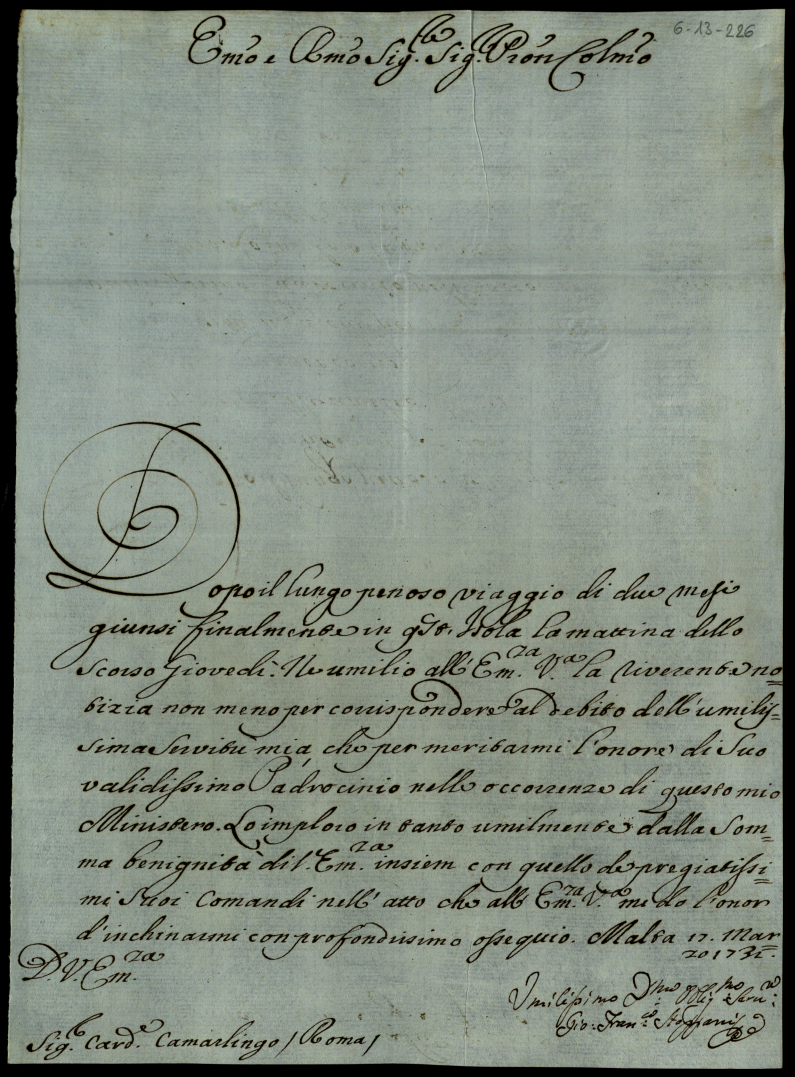 6-13-226
Emo e Rmo Sig.re Sig.re Pron Colmo
Dopo il lungo penoso viaggio di due mesi
giunsi finalmente in qsta Isola la mattina dello
scorso Giovedì. Ne umilio all'Em.za V.a la riverente no=
tizia non meno per corrispondere al debito dell'umilis=
sima servitù mia, che per meritarmi l'onore di Suo
validissimo Padrocinio nelle occorrenze di questo mio
Ministero. Lo imploro in tanto umilmente dalla Som=
ma benignità di V. Em.za insiem con quello de pregiatissi=
mi Suoi Comandi nell'atto che all'Em.za V.a mi do l'onor
d'inchinarmi con profondissimo ossequio. Malta 17. Mar
zo 1731.
D. V. Em.za
Umilissimo D.mo Obblig.mo Seru.re
Gio: Fran.co Stoppani
Sig.r Card.e Camarlingo / Roma /